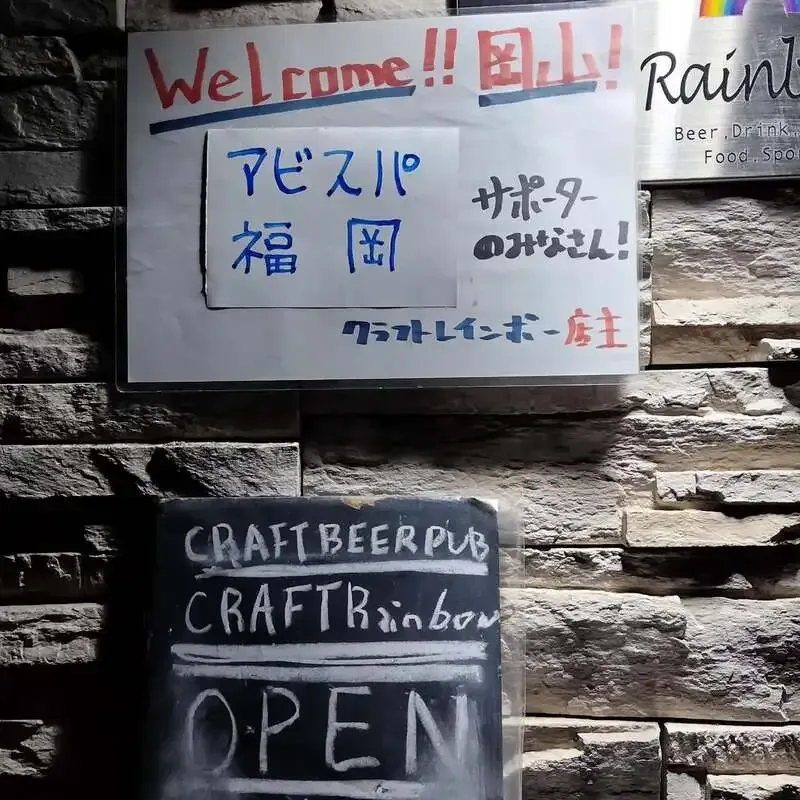 Welcome!! 岡山!
アビスパ
福岡
サポーター
のみなさん!
クラフトレインボー店主
Beer,Drink,
CRAFT BEER PUB
CRAFT Rainbow
OPEN